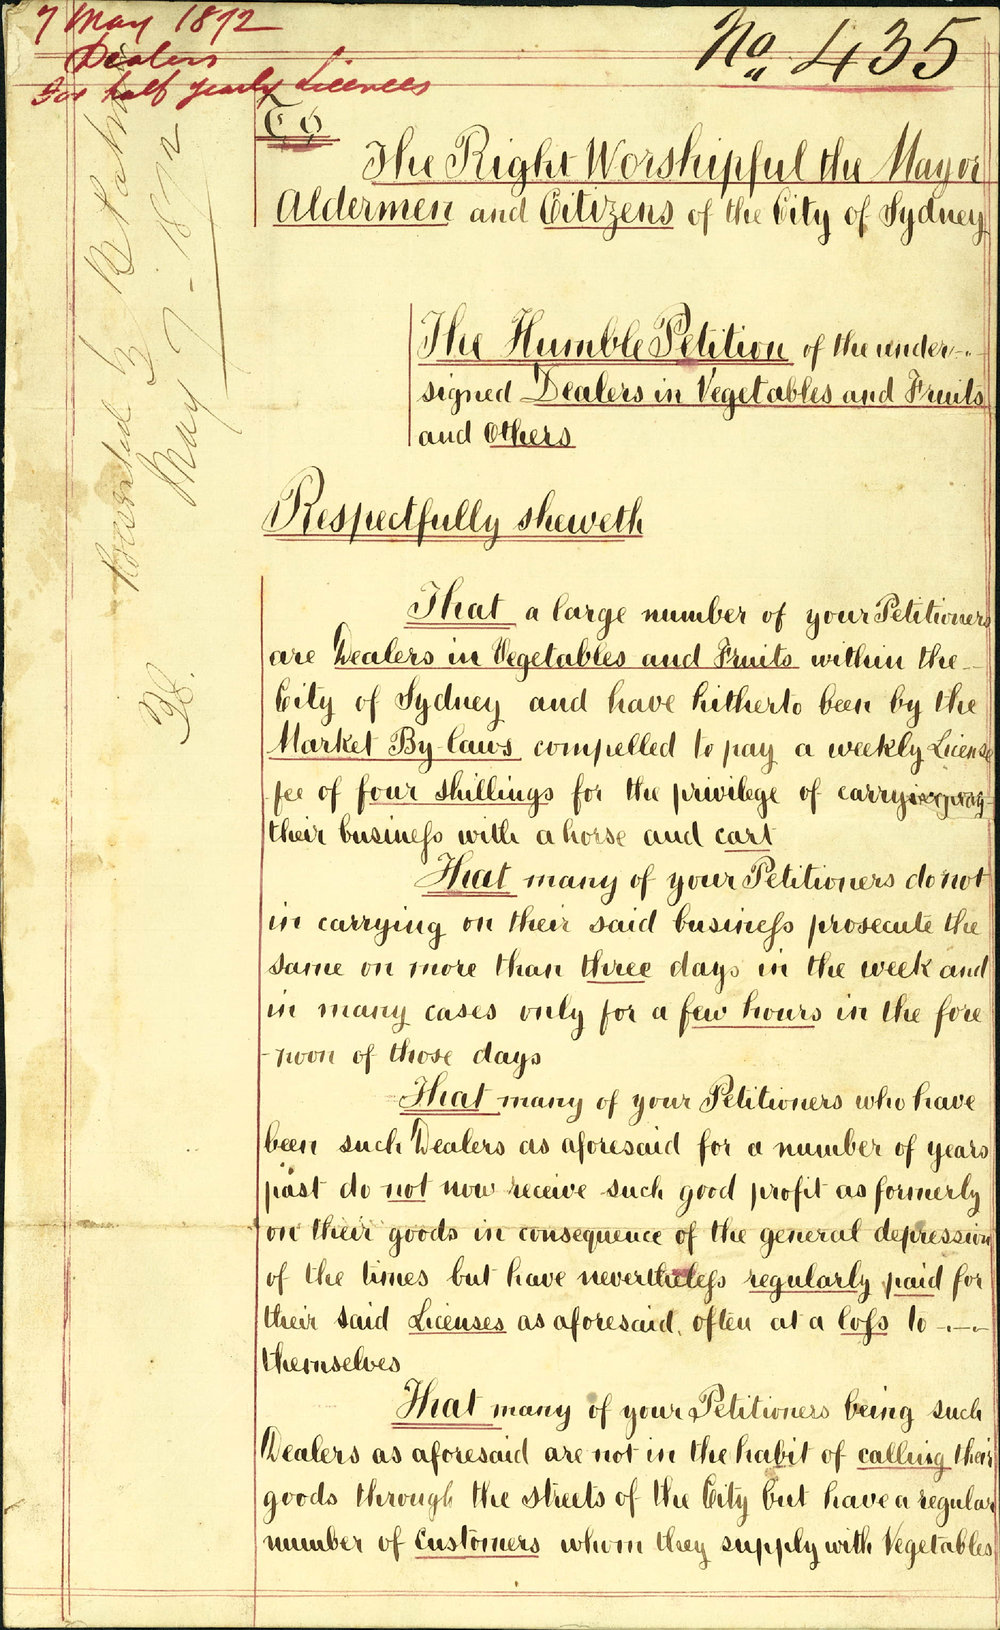 7 May 1872
Dealers
For half yearly Licences
No. 435
To
The Right Worshipful the Mayor
Aldermen and Citizens of the City of Sydney
The Humble Petition of the under-.-
signed Dealers in Vegetables and Fruits
and Others
Respectfully sheweth
That a large number of your Petitioners
are Dealers in Vegetables and Fruits within the
City of Sydney and have hitherto been by the
Market By-laws compelled to pay a weekly License
fee of four shillings for the privilege of carrying on
their busineſs with a horse and cart
That many of your Petitioners do not
in carrying on their said busineſs prosecute the
same on more than three days in the week and
in many cases only for a few hours in the fore
-noon of those days
That many of your Petitioners who have
been such Dealers as aforesaid for a number of years
past do not now receive such good profit as formerly
on their goods in consequence of the general depression
of the times but have nevertheleſs regularly paid for
their said Licenses as aforesaid, often at a loſs to -.-.-
themselves
That many of your Petitioners being such
Dealers as aforesaid are not in the habit of calling their
goods through the streets of the City but have a regular
number of Customers whom they supply with Vegetables
Presented by
May 7 - 1872